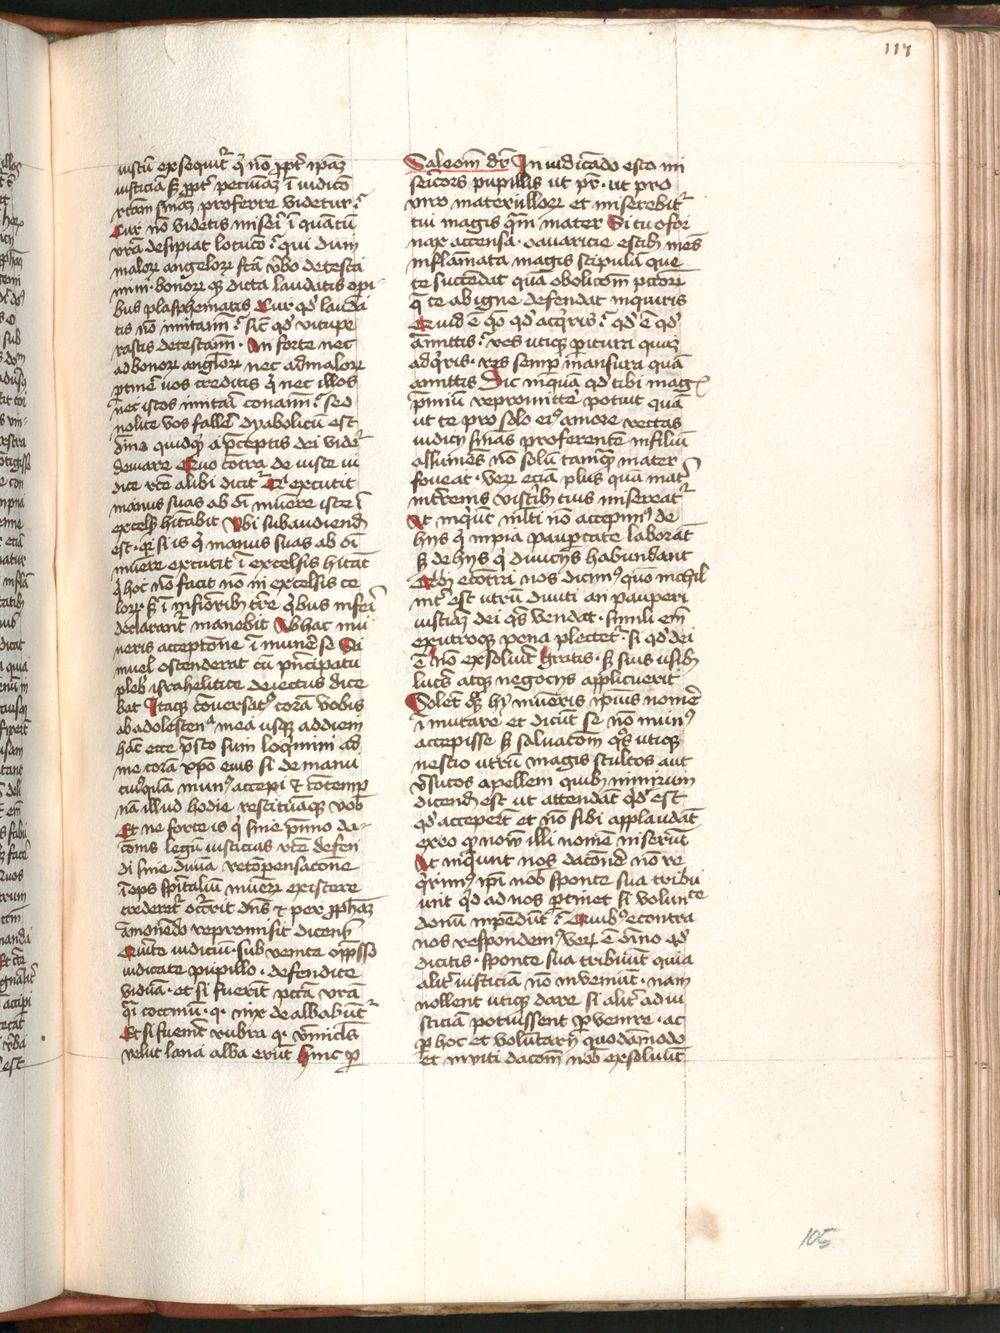 117
iustū exsequit᷑ qͥ nō ꝓpt᷑ ip̄aꝫ
iusticiā sꝫ ꝓpt᷑ pecuniaꝫ ī iudicō
rectam sn̄iaꝫ proferre videtur
Cur nō videtis miseri ī quantū
vr̄a desipiat locucō qui dum
malorꝝ angelorꝝ fc̄a v̄bo detesta
mini bonorꝝ qꝫ dicta laudatis opi
bus plasphematis Cur qd̓ lauda
tis nō imitami sic̄ qd̓ vitupe
rastis detestami An forte nec
ad bonorꝝ anglorꝝ nec ad malorꝝ
ꝑtinē vos creditis qͥ nec illos
nec istos imitari conami sed
nolite vos fallē dyabolicū est
om̄e quidqͥd a p̄ceptis dei videt᷑
deviare Quo contra de iusto iu
dice recte alibi dicit᷑ Qͥ excutit
manus suas ab om̄i mūere iste ī
excelsꝭ hitabit Vbi subaudiendū
est qꝛ si is qͥ manus suas ab om̄i
mūere excutit ī excelsis hitat
qͥ hoc nō facit nō in excelsis ce
lorꝝ sꝫ ī inferiorib tr̄e qͥbus inferi
declarant᷑ manebit Ab hac mu
neris acceptione īmunē se Sa
muel ostenderat cū pͥncipatu
plebꝭ israhelitice deiectus dice
bat Itaqꝫ conversatꝰ corā vobis
ab adolescentͣ mea usqꝫ ad diem
hāc ecce p̄sto sum loqͥmini ad
me corā xp̄o eius si de manu
cuiusquā munꝰ accepi & cōtempn
nā illud hodie restituāqꝫ vob̄
Et ne forte is qͥ sine p̄mio da
cōnis legū iusticias rectē defen
di sine diuina recōpensacōne
īops sp̄italiū munerꝝ existere
crederet᷑ occ̄rit dn̄s & per ꝓphaꝫ
āmonēdo repromisit dicens
Querite iudiciū subvenite opp̄sso
iudicate pupillo defendite
viduā et si fuerit pctā vr̄a
qͣi coccinū qͣ nix dealbabūt᷑
Et si fuerint rubra qͣ v̄miclꝭ
velut lana alba erūt hinc ꝑ
Saleom̄ dr̄ In iudicādo esto mi
sericors pupillis ut pr̄ ut pro
viro mater illorꝝ et miserebit᷑
tui magis qͣm mater Si tu ofor
nax accensa avaricie estibꝫ mēs
inflāmata magis stipulā que
te succendat quā obolicom pctorꝝ
qͥ te ab igne defendat inquiris
Quid ē qͦo qd̓ acqͥris qd̓ ē qd̓
āmittis res utiqꝫ ꝑitura quaꝫ
adqͥris res semꝑ mansura quā
amittis Sic inquā qd̓ tibi magꝭ
p̄miū repromittē potuit quā
ut te pro solo eiꝰ amore rectas
iudicij sn̄ias proferentē in filiū
assumēs nō solū tamqͣ mater
foveat verꝝ eciā plus quā mat᷑
int᷑renis viscibꝫ tuis misereat᷑
At inqͥūt ml̄ti nō accepimꝰ de
hijs qͥ inpia paupertate laborāt
sꝫ de hijs qͥ divicijs habundant
Qͥbꝫ econtra nos dicimꝰ quō nichil
int᷑ est utrū diuiti an pauperi
iusticiā dei qͥs vendat simili em̄
ex utroqꝫ pena plectet᷑ si qd̓ dei
ē nō exsolvit᷑ gratis sꝫ suis usibꝫ
lucꝭ atqꝫ negocijs applicuerit
Solēt qꝫ hij mūeris ip̄ius nomē
īmutare et dicūt se nō munꝰ
accepisse sꝫ salvatōm qͦs utiqꝫ
nescio utrū magis stultos aut
v̄sutos apellem quibꝫ nimirum
dicendū est ut attendāt qd̓ est
qd̓ acceperūt et nō sibi applaudāt
ex eo qͥ novū illi nomē inserūt
At inqͥunt nos dacōnē nō re
qͥrimꝰ ip̄i nob̄ sponte sua tribu
unt qd̓ ad nos ꝑtinet si volunte
donū inpendūt Quibꝰ econtra
nos respondemꝰ verꝝ ē om̄ino qd̓
dicitis sponte sua tribuūt quia
alit᷑ iusticiā nō inveniūt nam
nollent utiqꝫ dare si alit᷑ ad iu
sticiā potuissent ꝑvenire ac
ꝑ hoc et volūtarij quodāmodo
et inviti dacōm̄ nob̄ exsolvūt
105